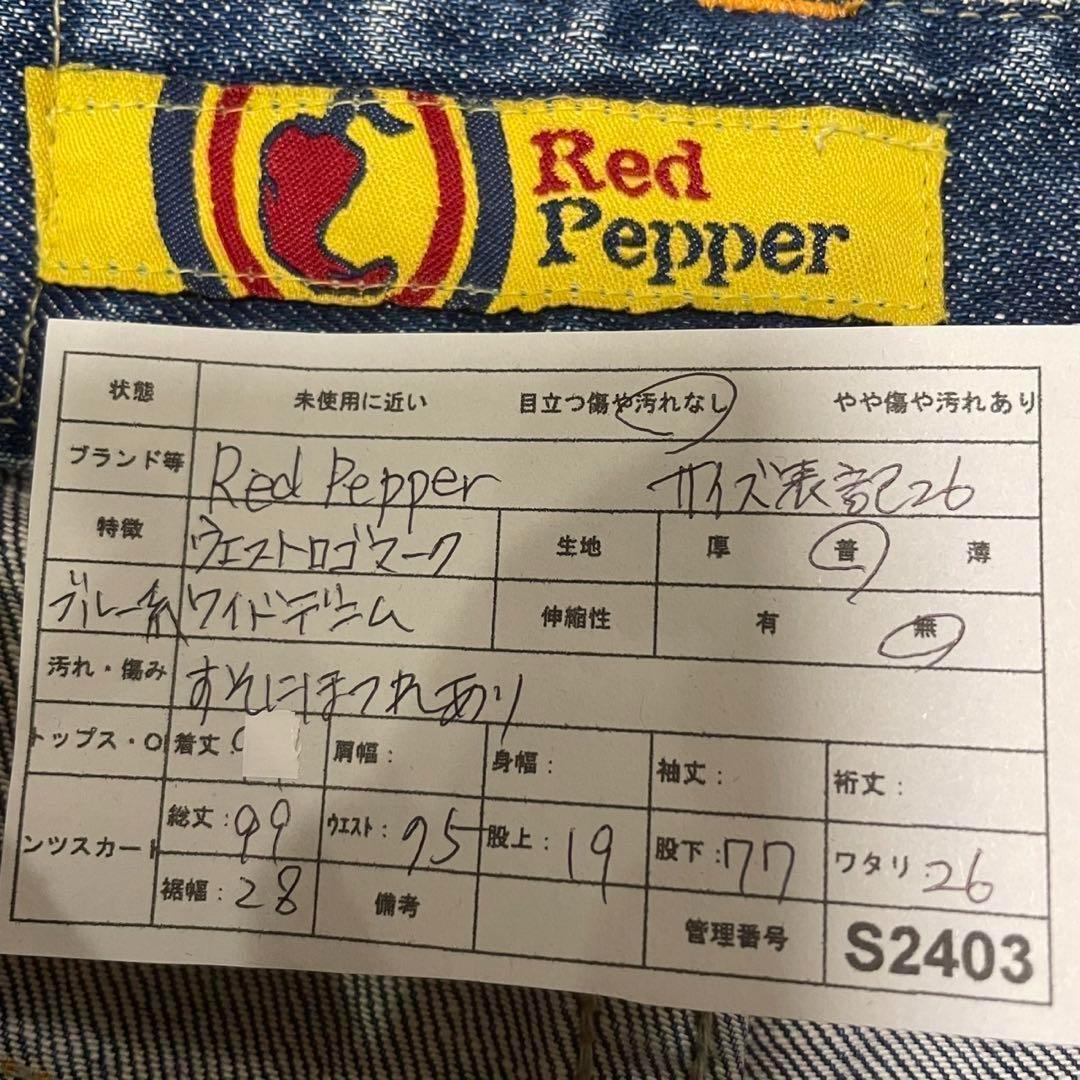 Red
Pepper
状態 未使用に近い 目立つ傷や汚れなし やや傷や汚れあり
ブランド等 Red Pepper サイズ表記26
特徴 ウエストロゴマーク 生地 厚 普 薄
ブルー系 ワイドデニム 伸縮性 有 無
汚れ・傷み すそにほつれあり
トップス・O 着丈: 肩幅: 身幅: 袖丈: 裄丈:
ンツスカート 総丈:99 ウエスト:75 股上:19 股下:77 ワタリ:26
裾幅:28 備考 管理番号 S2403